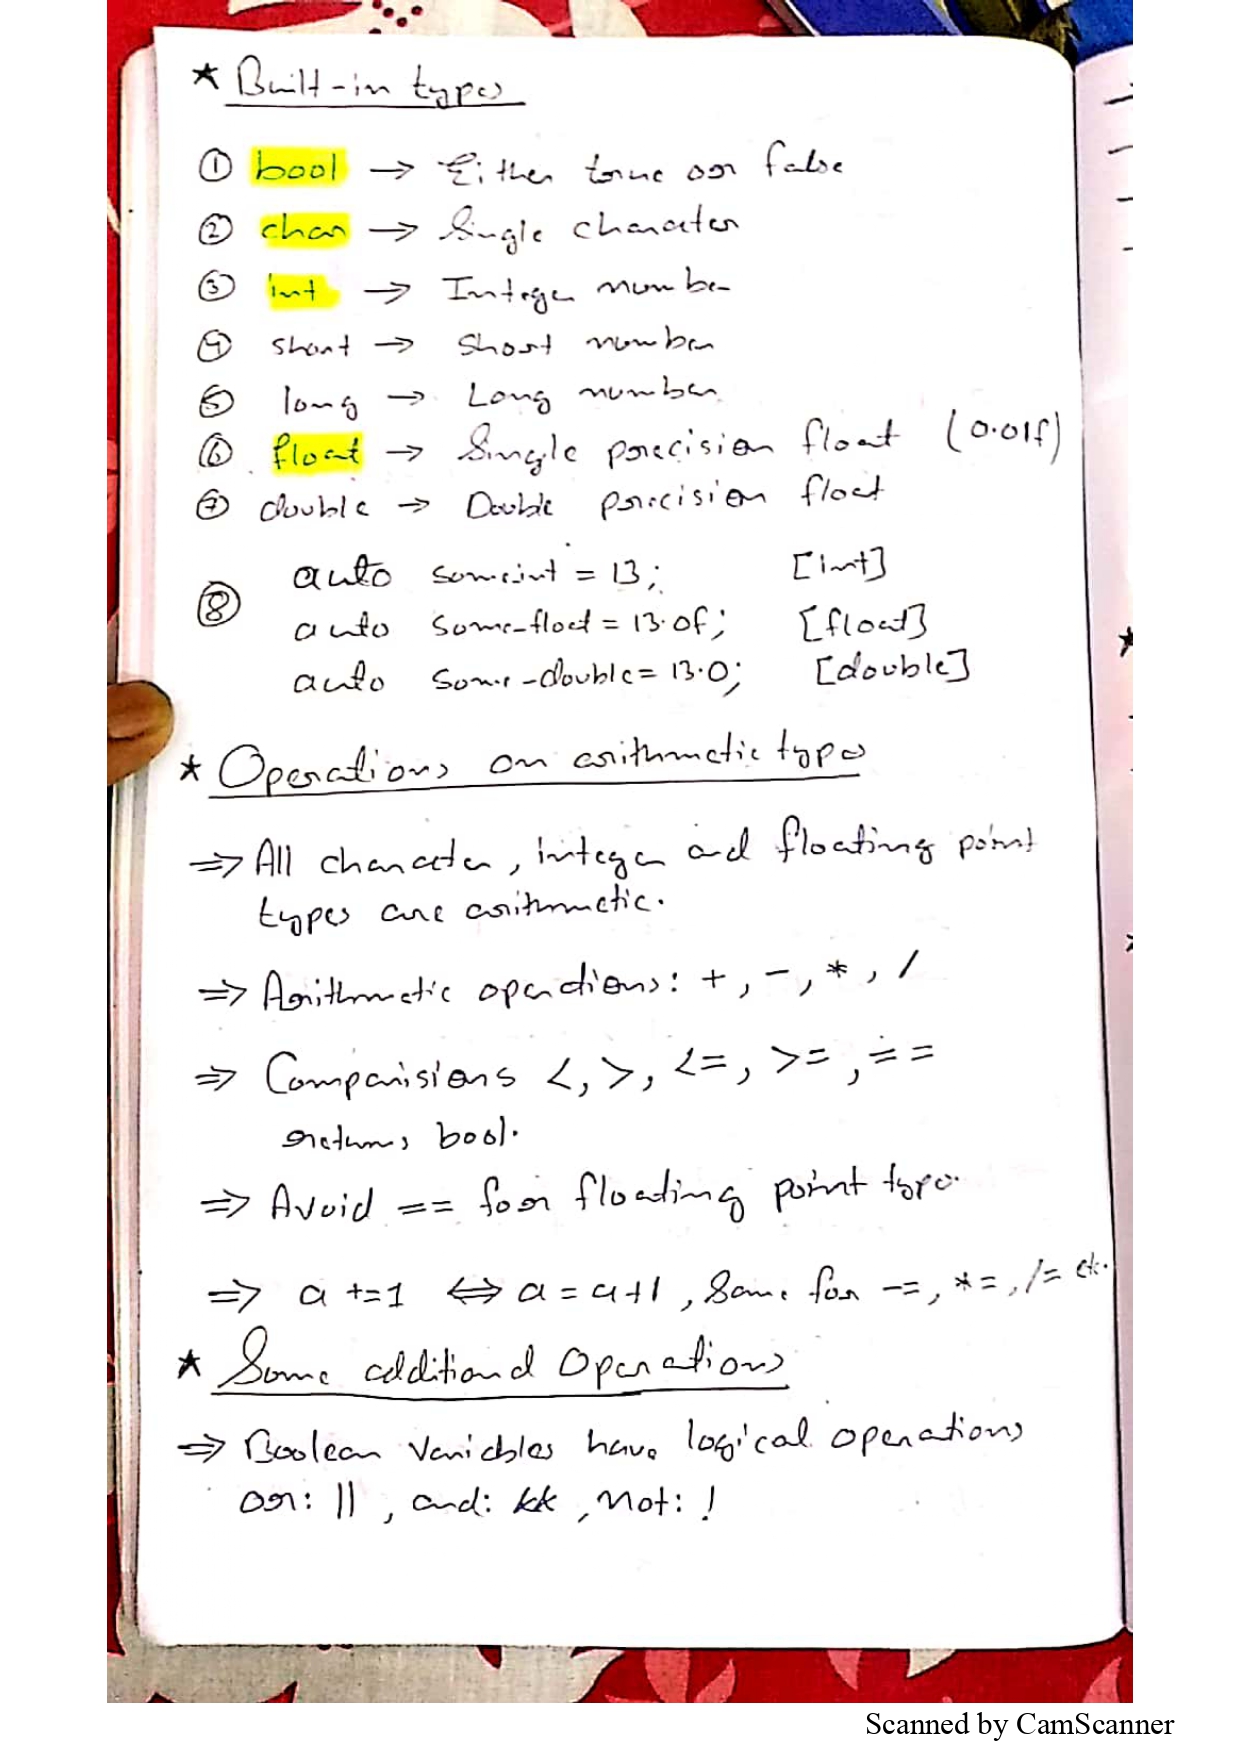 ★ Built-in types
① bool → Either true or false
② char → Single character
③ int → Integer number
④ short → Short number
⑤ long → Long number
⑥ float → Single precision float (0.01f)
⑦ double → Double precision float
⑧ auto some_int = 13; [int]
auto some_float = 13.0f; [float]
auto some_double = 13.0; [double]
★ Operations on arithmetic types
⇒ All character, integer and floating point
types are arithmetic.
⇒ Arithmetic operations: +, -, *, /
⇒ Comparisions <, >, <=, >=, ==
returns bool.
⇒ Avoid == for floating point type.
⇒ a += 1 ⇔ a = a+1, Same for -=, *=, /= etc.
★ Some additional Operations
⇒ Boolean variables have logical operations
or: ||, and: &&, not: !
Scanned by CamScanner